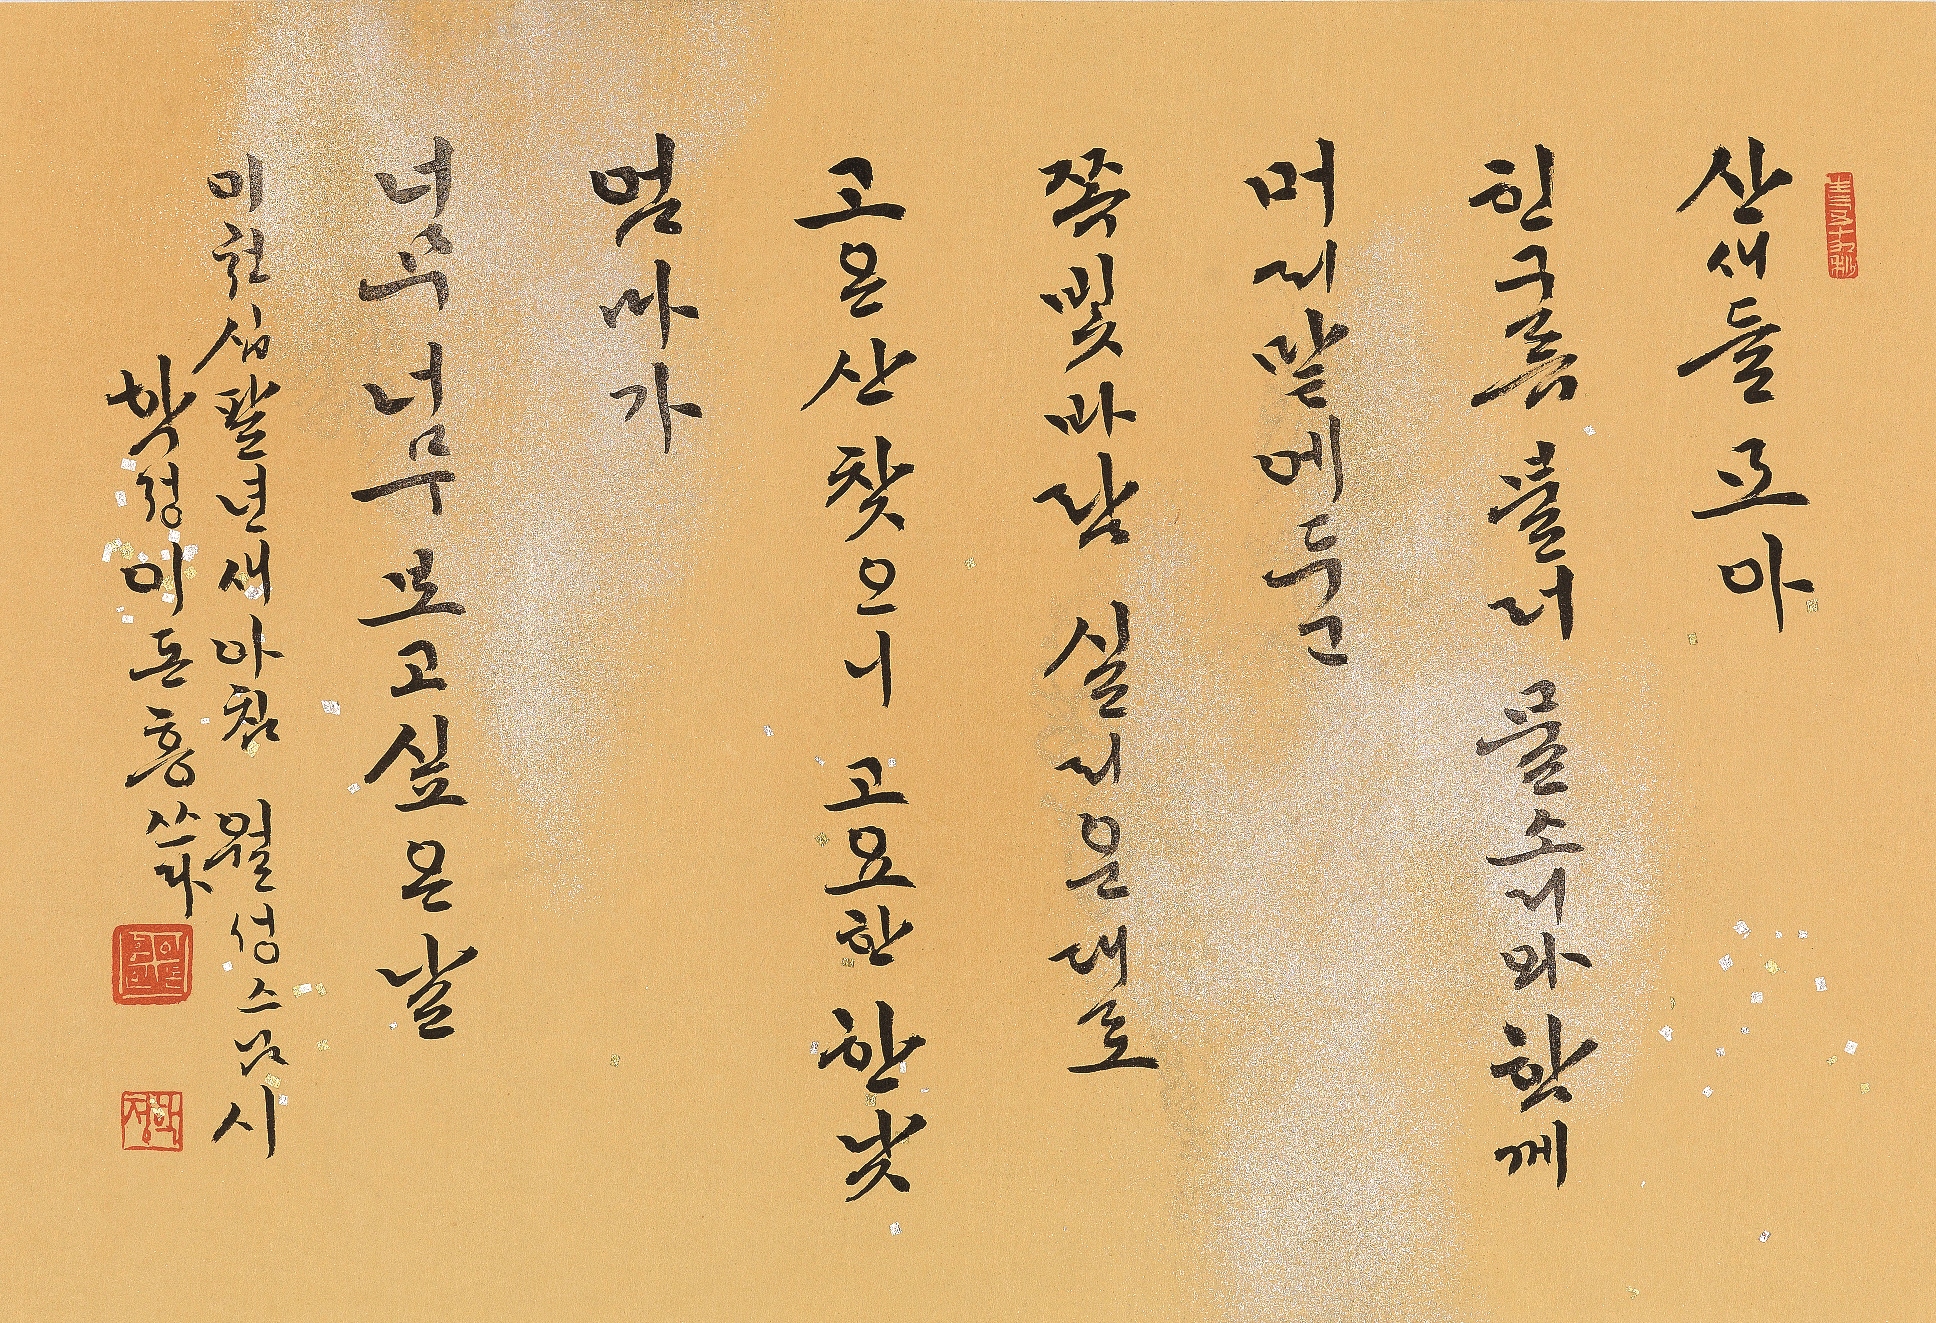 산새들 꼬마
흰구름 불러 물소리와 함께
머리맡에 두고
쪽빛 바람 실리운 대로
고은 산 찾으니 고요한 한낮
엄마가
너무 너무 보고 싶은 날
이천십팔년 새아침 월성스님 시
학정 이돈흥 쓰다
학정